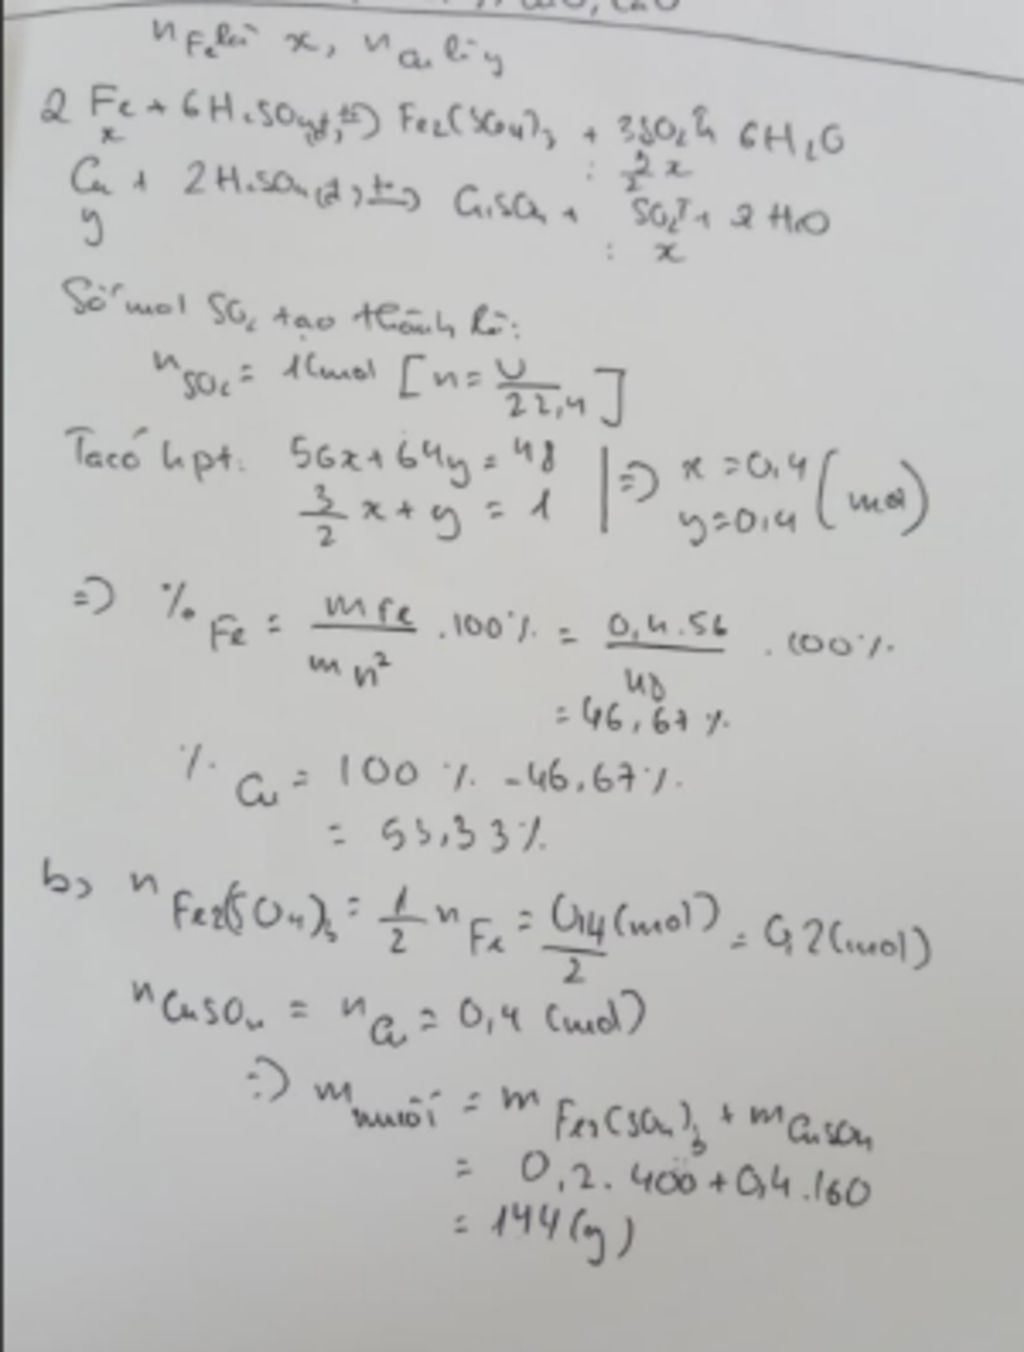 n Fe là x, n Cu là y
2 Fe + 6H2SO4đ, t° → Fe2(SO4)3 + 3SO2↑ 6H2O
x : 3/2 x
Cu + 2H2SO4(đ) t° → CuSO4 + SO2↑ + 2H2O
y : x
Số mol SO2 tạo thành là:
n SO2 = 1(mol [n = V/22,4]
Ta có hpt: 56x + 64y = 48 | => x = 0,4 (mol)
3/2 x + y = 1 y = 0,4
=> % Fe = mFe/m h² . 100% = 0,4.56/48 . 100%
= 46,67 %
% Cu = 100 % - 46,67%
= 53,33%
b, n Fe2(SO4)3 = 1/2 n Fe = 0,4(mol)/2 = 0,2(mol)
n CuSO4 = n Cu = 0,4 (mol)
=> m muối = m Fe2(SO4)3 + m CuSO4
= 0,2. 400 + 0,4.160
= 144(g)